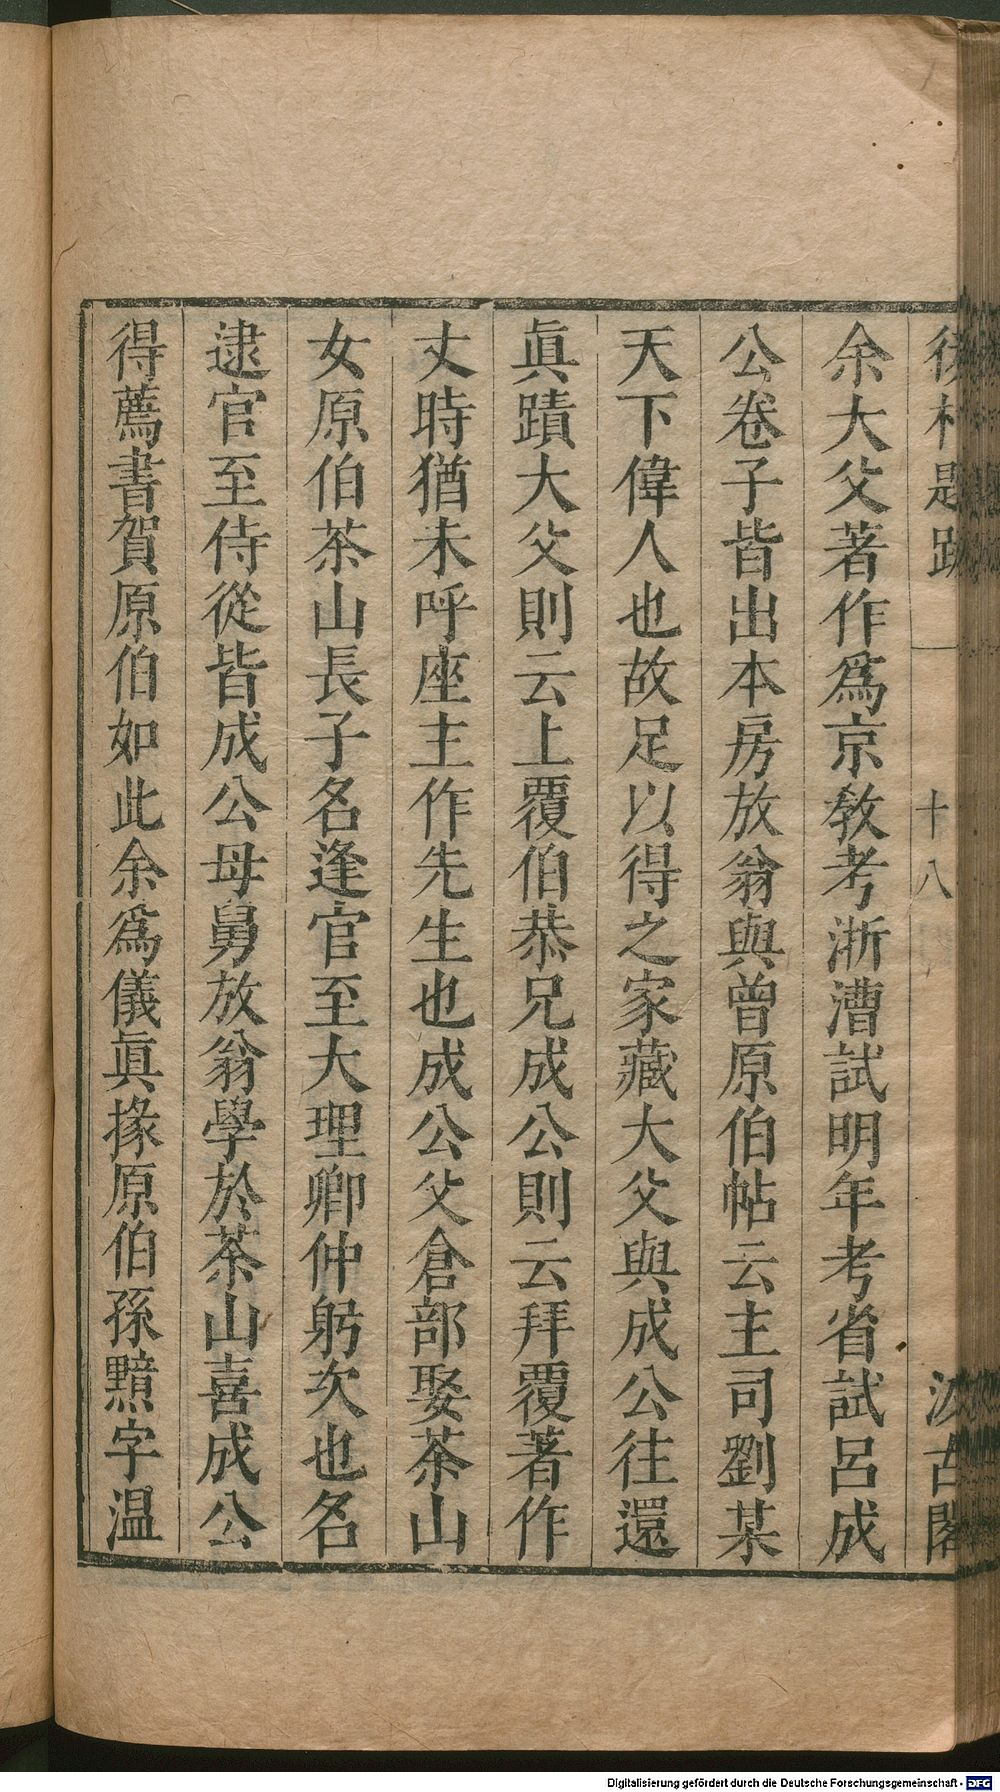 後村題跋 一 十八 汲古閣
余大父著作爲京敎考浙漕試明年考省試呂成
公卷子皆出本房放翁與曾原伯帖云主司劉某
天下偉人也故足以得之家藏大父與成公往還
眞蹟大父則云上覆伯恭兄成公則云拜覆著作
丈時猶未呼座主作先生也成公父倉部娶茶山
女原伯茶山長子名逢官至大理卿仲躬次也名
逮官至侍從皆成公母舅放翁學於茶山喜成公
得薦書賀原伯如此余爲儀眞掾原伯孫黯字溫
Digitalisierung gefördert durch die Deutsche Forschungsgemeinschaft - DFG